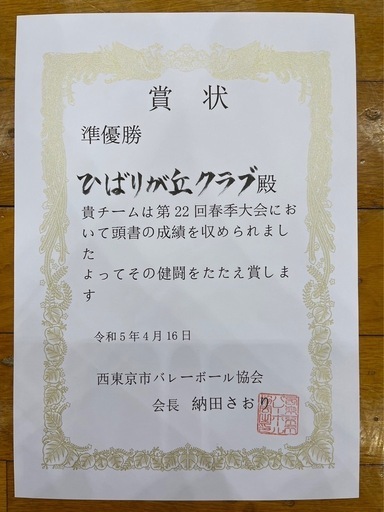 賞状
準優勝
ひばりが丘クラブ殿
貴チームは第22回春季大会にお
いて頭書の成績を収められまし
た
よってその健闘をたたえ賞しま
す
令和5年4月16日
西東京市バレーボール協会
会長 納田さおり